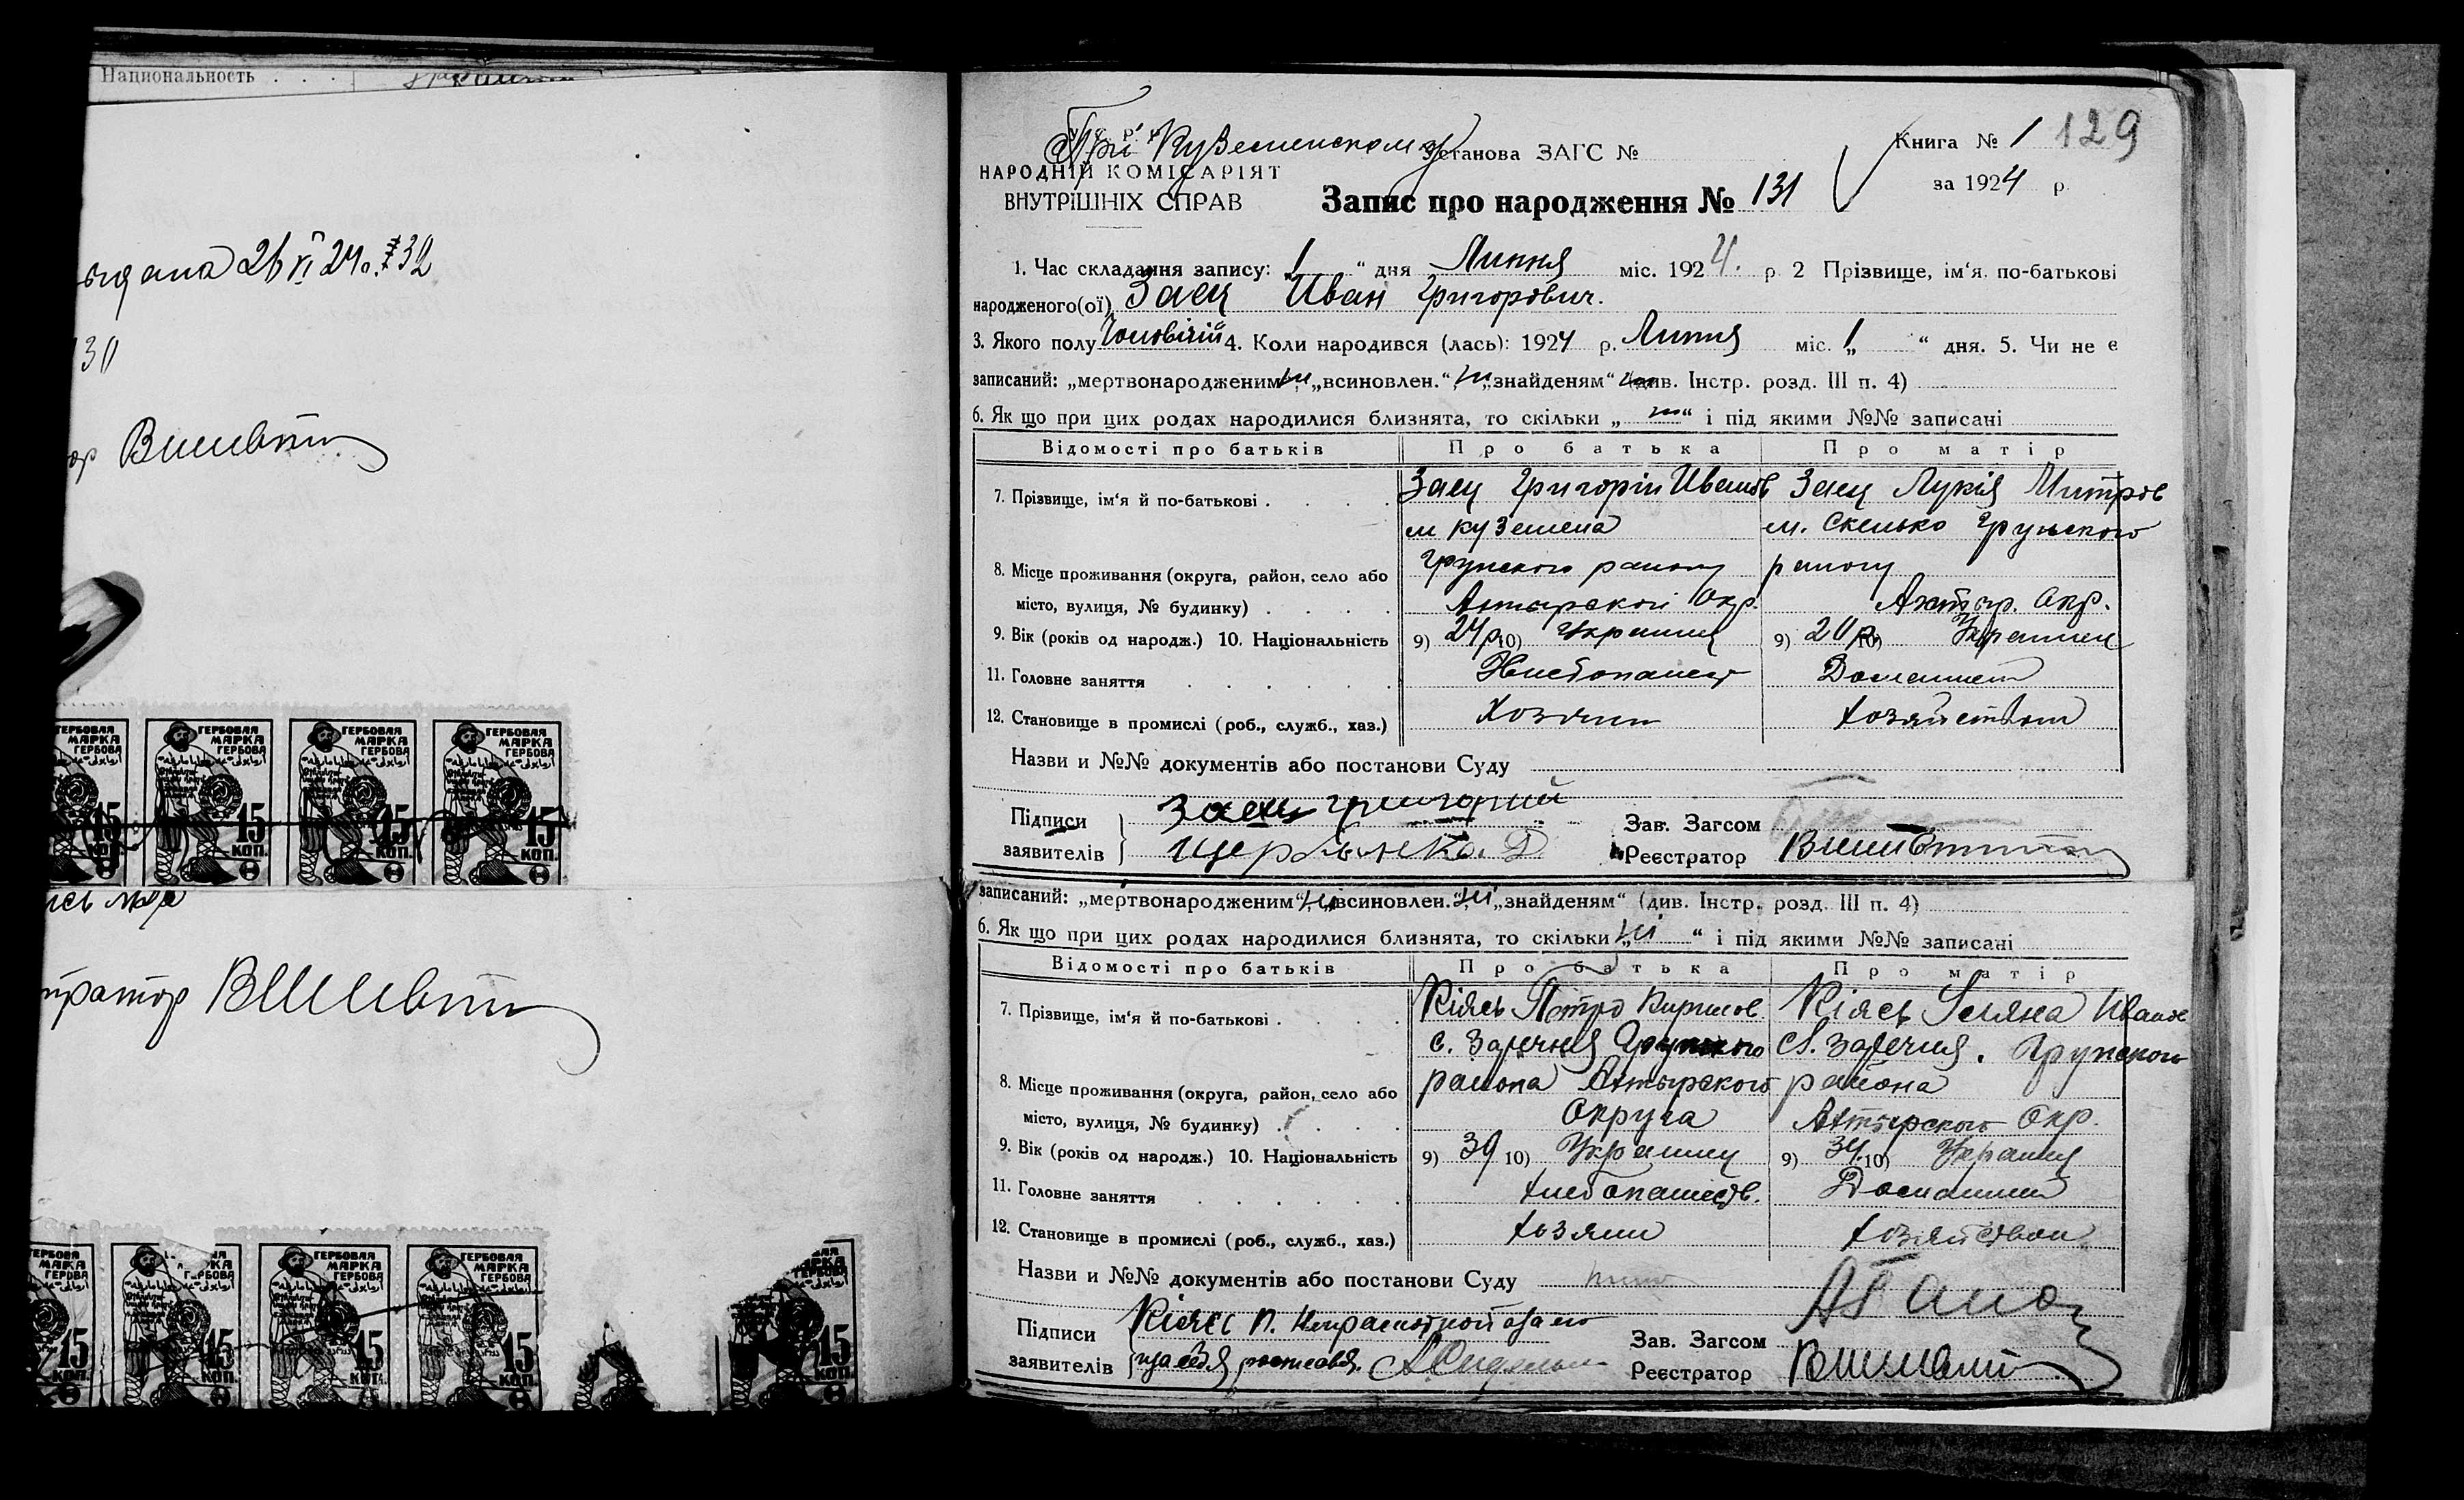 Национальность . . .
26 VI 24 г. № 32
30
ор Вишивти
ГЕРБОВАЯ МАРКА ГЕРБОВА 15 КОП.
ГЕРБОВАЯ МАРКА ГЕРБОВА 15 КОП.
ГЕРБОВАЯ МАРКА ГЕРБОВА 15 КОП.
ГЕРБОВАЯ МАРКА ГЕРБОВА 15 КОП.
ГЕРБОВАЯ МАРКА ГЕРБОВА 15 КОП.
ГЕРБОВАЯ МАРКА ГЕРБОВА 15 КОП.
ГЕРБОВАЯ МАРКА ГЕРБОВА 15 КОП.
При Куземенском Установа ЗАГС №
Книга № 1 129
НАРОДНІЙ КОМІСАРІЯТ
ВНУТРІШНІХ СПРАВ
за 1924 р.
Запис про народження № 131
1. Час складання запису: „1“ дня Липня міс. 1924. р. 2 Прізвище, ім‘я. по-батькові
народженого(ої) Заец Иван Григорович.
3. Якого полу Чоловічій 4. Коли народився (лась): 1924 р. Липня міс. „1“ дня. 5. Чи не є
записаний: „мертвонародженим“ ні „всиновлен.“ ні „знайденям“ (див. Інстр. розд. III п. 4)
6. Як що при цих родах народилися близнята, то скільки „ні“ і під якими №№ записані
Відомості про батьків Про батька Про матір
7. Прізвище, ім‘я й по-батькові . Заец Григорій Иванов Заец Лукія Митров
м Куземена м. Скелько Грунского
8. Місце проживання (округа, район, село або Грунского району району
місто, вулиця, № будинку) Ахтырской Окр. Ахтыр. Окр.
9. Вік (років од народж.) 10. Національність 9) 24 р. 10) Украинец 9) 20 р. 10) Украинец
11. Головне заняття Хлебопашест Домашнем
12. Становище в промислі (роб., служб., хаз.) Хозяин хозяйством
Назви и №№ документів або постанови Суду
Підписи Заец Григорий Зав. Загсом
заявителів Щербинка. Реєстратор
записаний: „мертвонародженим“, ні „всиновлен.“ ні „знайденям“ (див. Інстр. розд. III п. 4)
6. Як що при цих родах народилися близнята, то скільки „ні“ і під якими №№ записані
Відомості про батьків Про батька Про матір
7. Прізвище, ім‘я й по-батькові . Кіясь Петро Кирилов Кіясь Уляна Иванов
с. Заречня Грунского С. Заречня. Грунского
8. Місце проживання (округа, район, село або района Ахтырского района
місто, вулиця, № будинку) Округа Ахтырского Окр.
9. Вік (років од народж.) 10. Національність 9) 39 10) Украинец 9) 34 10) Украинец
11. Головне заняття хлебопашеств. Домашнем
12. Становище в промислі (роб., служб., хаз.) хозяин хозяйством
Назви и №№ документів або постанови Суду
Підписи Кіясь П. Зав. Загсом
заявителів Реєстратор